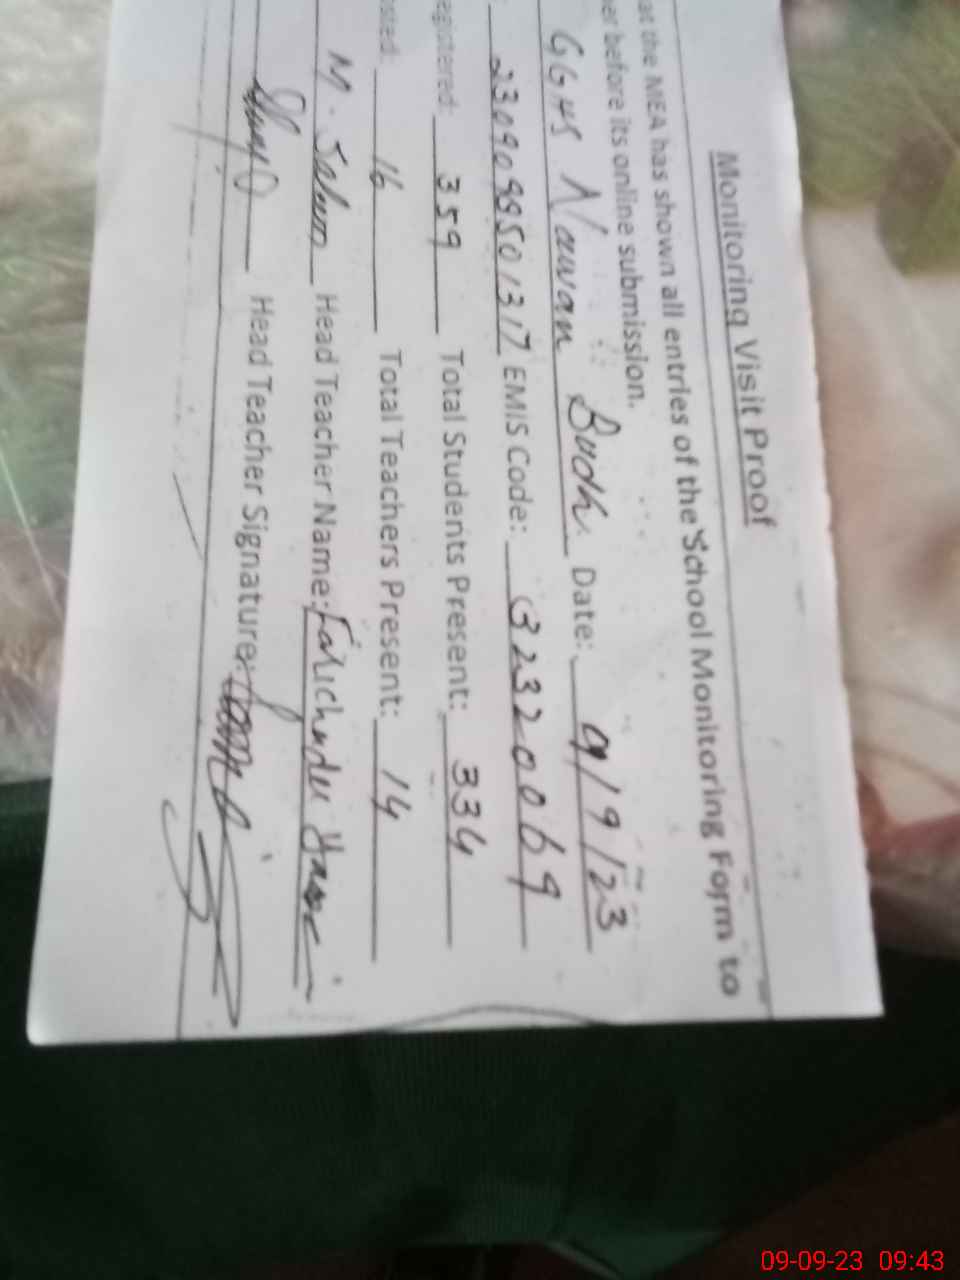 Monitoring Visit Proof
at the MEA has shown all entries of the School Monitoring Form to
er before its online submission.
GGHS Nawan Budh Date: 9/9/23
EMIS Code: 32320069
egistered: 359 Total Students Present: 334
osted: 16 Total Teachers Present: 14
M. Head Teacher Name:
Head Teacher Signature:
09-09-23 09:43